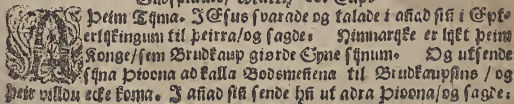 A Þeim Tijma. JEsus svarade og talade i añad siñ i Epter-
erlijkingum til þeirra/og sagde. Himnarijke er lijkt þeim
Konge/sem Brudkaup giørde Syne sijnum. Og utsende
sijna Þioona ad kalla Bodsmeñena til Brudkaupsins / og
þeir villdu ecke koma. J añad siñ sende hñ ut adra Þioona/og sagde: